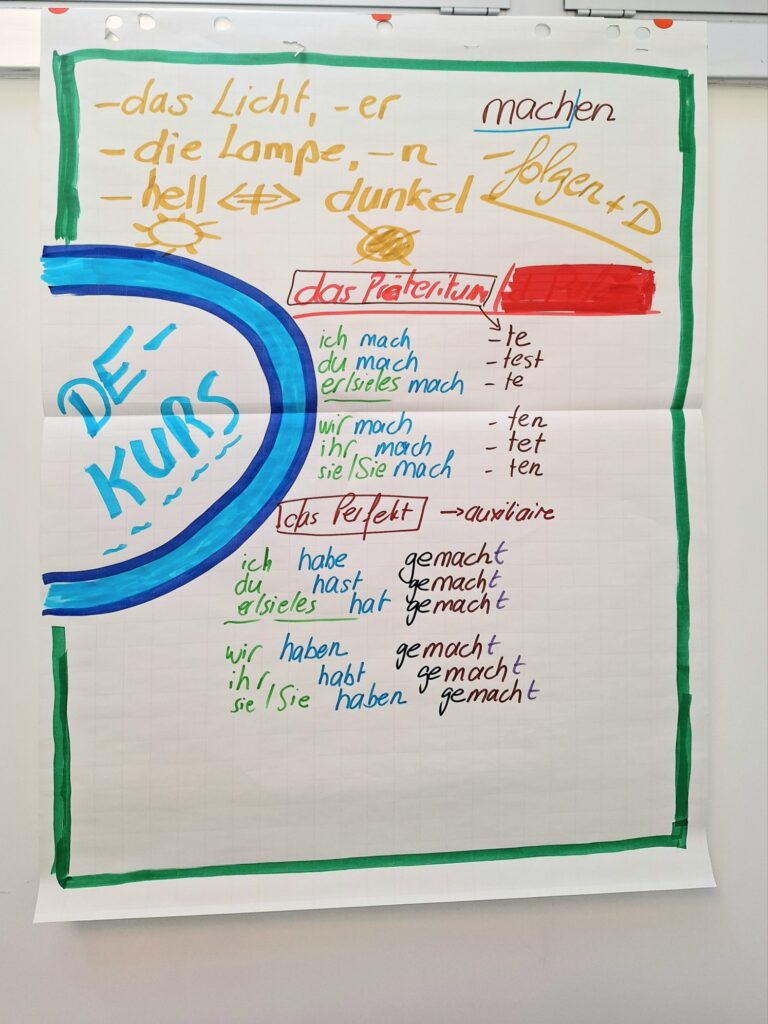 -das Licht, -er
machen
-die Lampe, -n
-folgen + D
-hell <≠> dunkel
das Präteritum /
DE-
KURS
ich mach -te
du mach -test
er/sie/es mach -te
wir mach -ten
ihr mach -tet
sie/Sie mach -ten
das Perfekt →auxiliaire
ich habe gemacht
du hast gemacht
er/sie/es hat gemacht
wir haben gemacht
ihr habt gemacht
sie/Sie haben gemacht